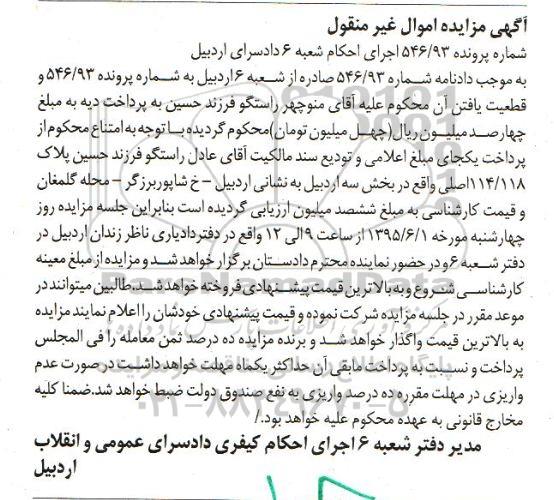 آگهی مزایده اموال غیر منقول
شماره پرونده ۵۴۶/۹۳ اجرای احکام شعبه ۶ دادسرای اردبیل
به موجب دادنامه شماره ۵۴۶/۹۳ صادره از شعبه ۶ اردبیل به شماره پرونده ۵۴۶/۹۳ و
قطعیت یافتن آن محکوم علیه آقای منوچهر راستگو فرزند حسین به پرداخت دیه به مبلغ
چهارصد میلیون ریال(چهل میلیون تومان)محکوم گردیده با توجه به امتناع محکوم از
پرداخت یکجای مبلغ اعلامی و تودیع سند مالکیت آقای عادل راستگو فرزند حسین پلاک
۱۱۴/۱۱۸اصلی واقع در بخش سه اردبیل به نشانی اردبیل – خ شاپوربرزگر – محله گلمغان
و قیمت کارشناسی به مبلغ ششصد میلیون ارزیابی گردیده است بنابراین جلسه مزایده روز
چهارشنبه مورخه ۱۳۹۵/۶/۱ از ساعت ۹ الی ۱۲ واقع در دفتر دادیاری ناظر زندان اردبیل در
دفتر شعبه ۶ و در حضور نماینده محترم دادستان برگزار خواهد شد و مزایده از مبلغ معینه
کارشناسی شروع و به بالاترین قیمت پیشنهادی فروخته خواهد شد.طالبین میتوانند در
موعد مقرر در جلسه مزایده شرکت نموده و قیمت پیشنهادی خودشان را اعلام نمایند مزایده
به بالاترین قیمت واگذار خواهد شد و برنده مزایده ده درصد ثمن معامله را فی المجلس
پرداخت و نسبت به پرداخت مابقی آن حداکثر یکماه مهلت خواهد داشت در صورت عدم
واریزی در مهلت مقرره ده درصد واریزی به نفع صندوق دولت ضبط خواهد شد.ضمنا کلیه
مخارج قانونی به عهده محکوم علیه خواهد بود./
مدیر دفتر شعبه ۶ اجرای احکام کیفری دادسرای عمومی و انقلاب
اردبیل